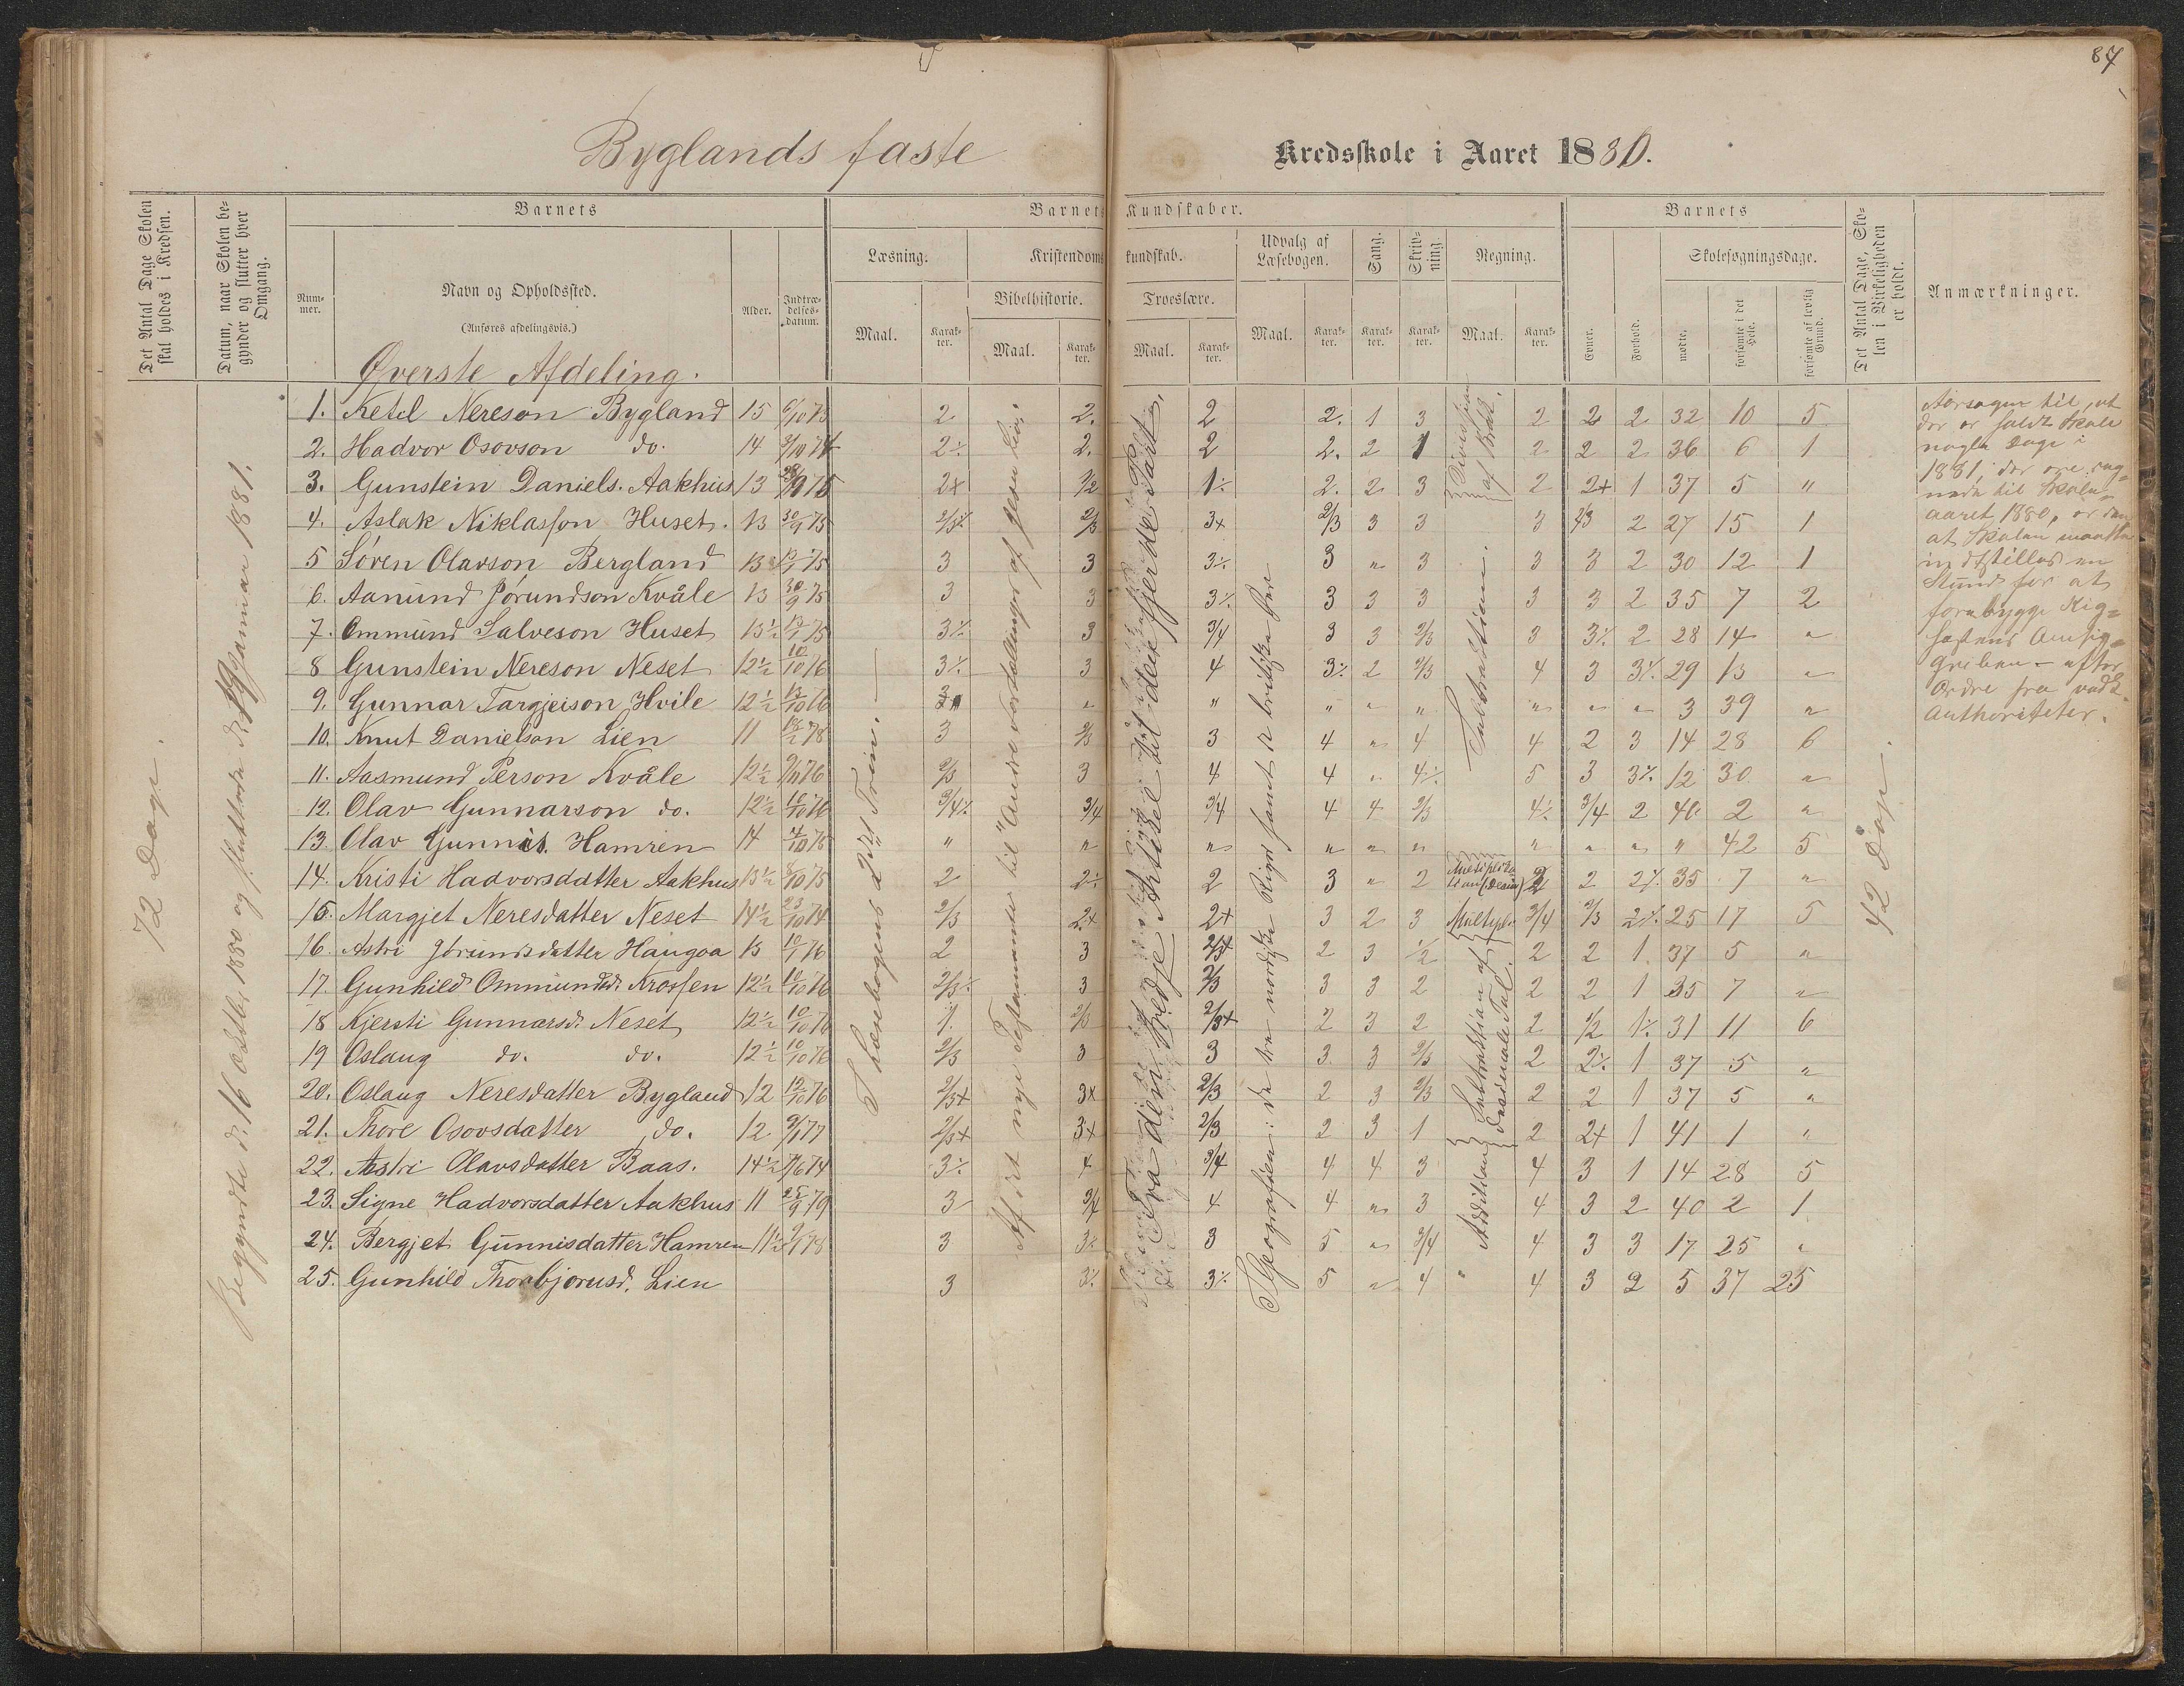 87
Byglands faste Kredsskole i Aaret 1880.
Det Antal Dage Skolen skal holdes i Kredsen.
Datum, naar Skolen begynder og slutter hver Omgang.
Barnets
Barnets Kundskaber.
Barnets
Det Antal Dage, Skolen i Virkeligheden er holdt.
Anmærkninger.
Nummer.
Navn og Opholdssted.
(Anføres afdelingsvis.)
Alder.
Indtrædelsesdatum.
Læsning.
Kristendomskundskab.
Udvalg af Læsebogen.
Sang.
Skrivning.
Regning.
Evner.
Forhold.
Skolesøgningsdage.
Bibelhistorie.
Troeslære.
mødte.
forsømte i det Hele.
forsømte af lovlig Grund.
Maal. Karakter. Maal. Karakter. Maal. Karakter. Maal. Karakter. Karakter. Karakter. Maal. Karakter.
Øverste Afdeling.
1. Ketil Nereson Bygland 15 2 2. 2 2. 1 3 2 2 2 32 10 5
2. Hadvor Osovson do. 14 2÷ 2. 2 2. 2 1 2 2 2 36 6 1
3. Gunstein Daniels. Aakhus 13 2+ 1/2 1÷ 2. 2 3 2 2+ 1 37 5 "
4. Aslak Niklasson Huset. 13 30/9 75 2/3÷ 2/3 3+ 2/3 3 3 3 2/3 2 27 15 1
5 Søren Olavson Bergland 13 3 3 3÷ 3 " 3 3 3 2 30 12 1
6. Aanund Jórundson Kvåle 13 30/9 75 3 3 3÷ 3 3 3 3 3 2 35 7 2
7. Ommund Salveson Huset 13½ 3÷ 3 3/4 3 3 2/3 3 3÷ 2 28 14 "
8 Gunstein Nereson Neset 12½ 10/10 76 3÷ 3 4 3÷ 2 2/3 4 3 3÷ 29 13 "
9. Gunnar Targjeison Hvile 12½ " " " " " " " " 3 39 "
10. Knut Danielson Lien 11 3 2/3 3 4 " 4 4 2 3 14 28 6
11. Aasmund Person Kvåle 12½ 2/3 3 4 4 " 4÷ 5 3 3÷ 12 30 "
12. Olav Gunnarson do. 12½ 10/10 76 3/4÷ 3/4 3/4 4 4 2/3 4÷ 3/4 2 40 2 "
13. Olav Gunnis. Hamren 14 " " " " " " " " " " 42 5
14. Kristi Hadvorsdatter Aakhus 13½ 8/10 75 2 2÷ 2 3 " 2 2 2 2÷ 35 7 "
15. Margjet Neresdatter Neset 14½ 23/10 74 2/3 2+ 2+ 3 2 3 3/4 2/3 2÷ 25 17 5
16. Astri Jórundsdatter Haugoa 13 2 3 2/3+ 2 3 1/2 2 2 1 37 5 "
17. Gunhild Ommundsd. Krossen 12½ 10/10 76 2/3÷ 3 2/3 3 3 2 2 2 1 35 7 "
18 Kjersti Gunnarsd. Neset 12½ 10/10 76 2/3 2/3+ 2 3 2 2 1/2 1÷ 31 11 6
19 Oslaug do. do. 12½ 10/10 76 2/3 3 3 3 3 2/3 2 2÷ 1 37 5 "
20. Oslaug Neresdatter Bygland 12 2/3+ 3+ 2/3 2 3 2/3 2 2 1 37 5 "
21. Thore Osovsdatter do. 12 9/1 77 2/3+ 3+ 2/3 2 3 1 2 2+ 1 41 1 "
22. Astri Olavsdatter Baas. 14½ 3÷ 4 3/4 4 4 3 4 3 1 14 28 5
23. Signe Hadvorsdatter Aakhus 11 25/9 79 3 3/4 4 4 " 3 4 3 2 40 2 1
24. Bergjet Gunnisdatter Hamren 11½ 3 3÷ 3 5 " 3/4 4 3 3 17 25 "
25. Gunhild Thorbjørnsd. Lien 3 3÷ 3÷ 5 " 4 " 4 3 2 5 37 25
72 Dage.
Begyndte d. 16 Octbr 1880 og sluttede d. Januar 1881.
I Læsebogens 2det Trin.
Af det nye Testamente til "Andre Fortællinger af Jesu Liv.
Fra den tredje Artikel til den fjerde Part.
I Geografien: de tre nordiske Riger samt de britiske Øer
Division af Brøk.
Subtraktion.
Multiplikation (Decim)
Multipl.
Subtraktion af Decimale Tal.
Addition
42 Dage.
Aarsagen til, at
der er holdt Skole
nogle Dage i
1881, der ere reg=
nede til Skole=
aaret 1880, er den
at Skolen maatte
indstilles en
Stund for at
forebygge Kig=
hostens Omsig=
griben - efter
Ordre fra vedk.
Authoriteter.